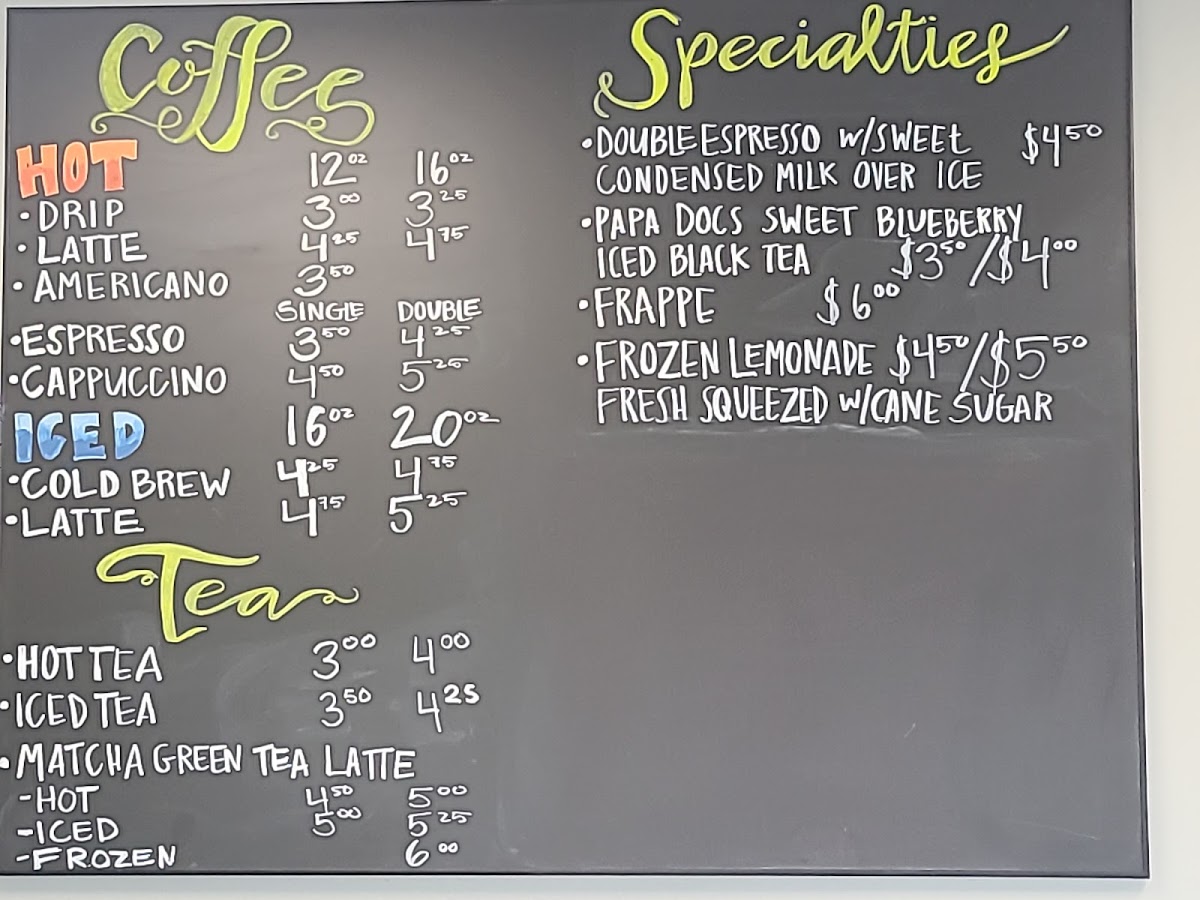 Coffee
HOT 12oz 16oz
• DRIP 3.00 3.25
• LATTE 4.25 4.75
• AMERICANO 3.50
SINGLE DOUBLE
• ESPRESSO 3.50 4.25
• CAPPUCCINO 4.50 5.25
ICED 16oz 20oz
• COLD BREW 4.25 4.75
• LATTE 4.75 5.25
Tea
• HOT TEA 3.00 4.00
• ICED TEA 3.50 4.25
• MATCHA GREEN TEA LATTE
-HOT 4.50 5.00
-ICED 5.00 5.25
-FROZEN 6.00
Specialties
• DOUBLE ESPRESSO W/SWEET $4.50
CONDENSED MILK OVER ICE
• PAPA DOCS SWEET BLUEBERRY
ICED BLACK TEA $3.50/$4.00
• FRAPPE $6.00
• FROZEN LEMONADE $4.50/$5.50
FRESH SQUEEZED W/CANE SUGAR